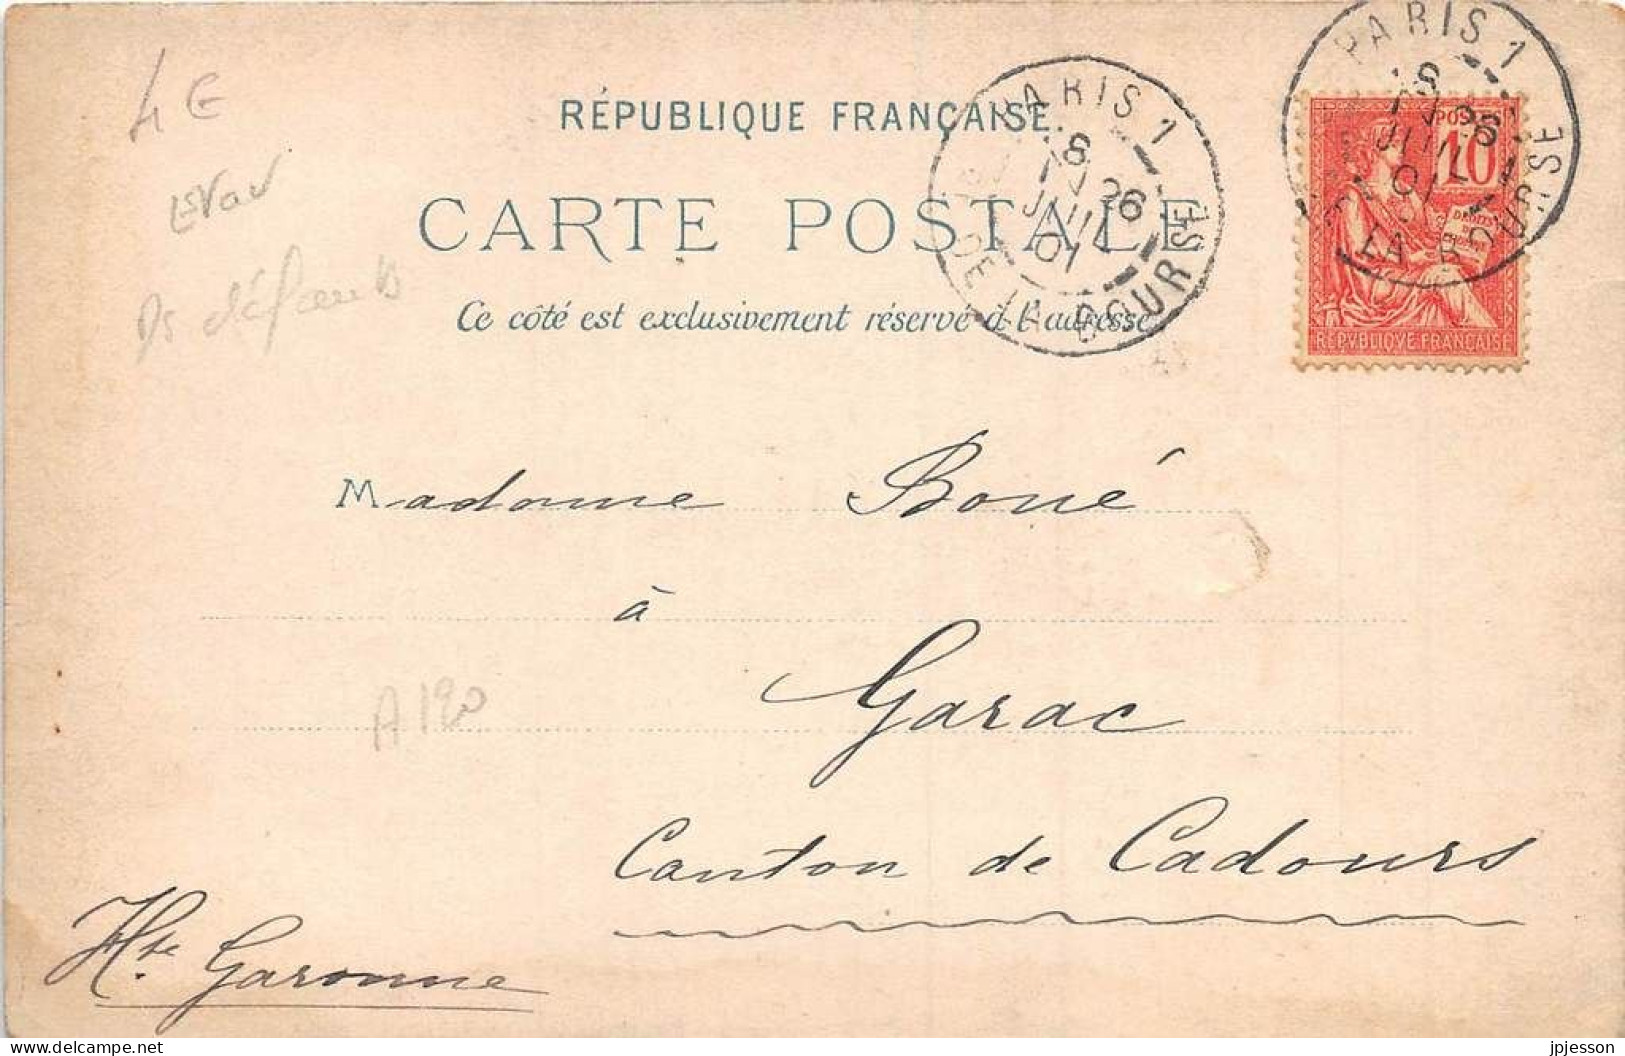 4 €
RÉPUBLIQUE FRANÇAISE.
CARTE POSTALE
Ce côté est exclusivement réservé à l'adresse
PARIS 1
8
26
JUIL
01
DE LA BOURSE
PARIS 1
8
26
JUIL
01
LA BOURSE
POSTES
10
DROITS
DE
L'HOMME
RÉPVBLIQVE FRANÇAISE
Ds défauts
Madame Boué
à
Garac
A 120
Canton de Cadours
Hte Garonne
jpjesson